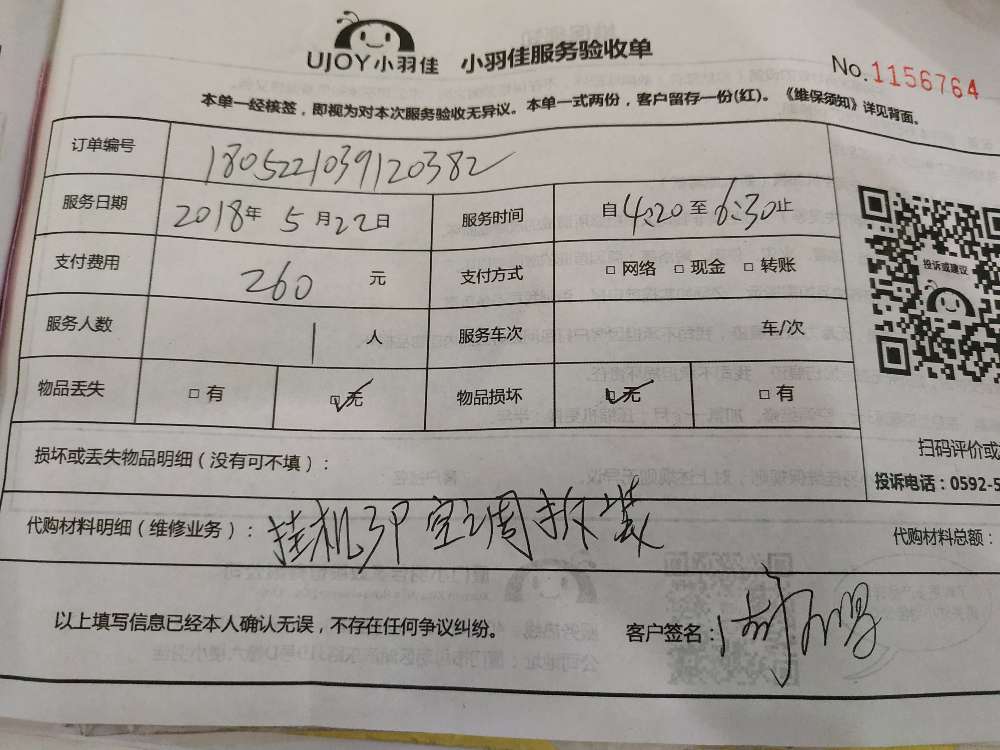 UJOY小羽佳 小羽佳服务验收单
No.1156764
本单一经核签，即视为对本次服务验收无异议。本单一式两份，客户留存一份(红)。《维保须知》详见背面。
订单编号 1805221039120382
服务日期 2018年 5月22日 服务时间 自4:20至6:30止
支付费用 260 元 支付方式 □ 网络 □ 现金 □ 转账
投诉或建议
服务人数 1 人 服务车次 车/次
物品丢失 □ 有 ☑ 无 物品损坏 ☑ 无 □ 有
损坏或丢失物品明细（没有可不填）：
扫码评价或
投诉电话：0592-5
代购材料明细（维修业务）：挂机3P空调拆装 代购材料总额：
以上填写信息已经本人确认无误，不存在任何争议纠纷。 客户签名：